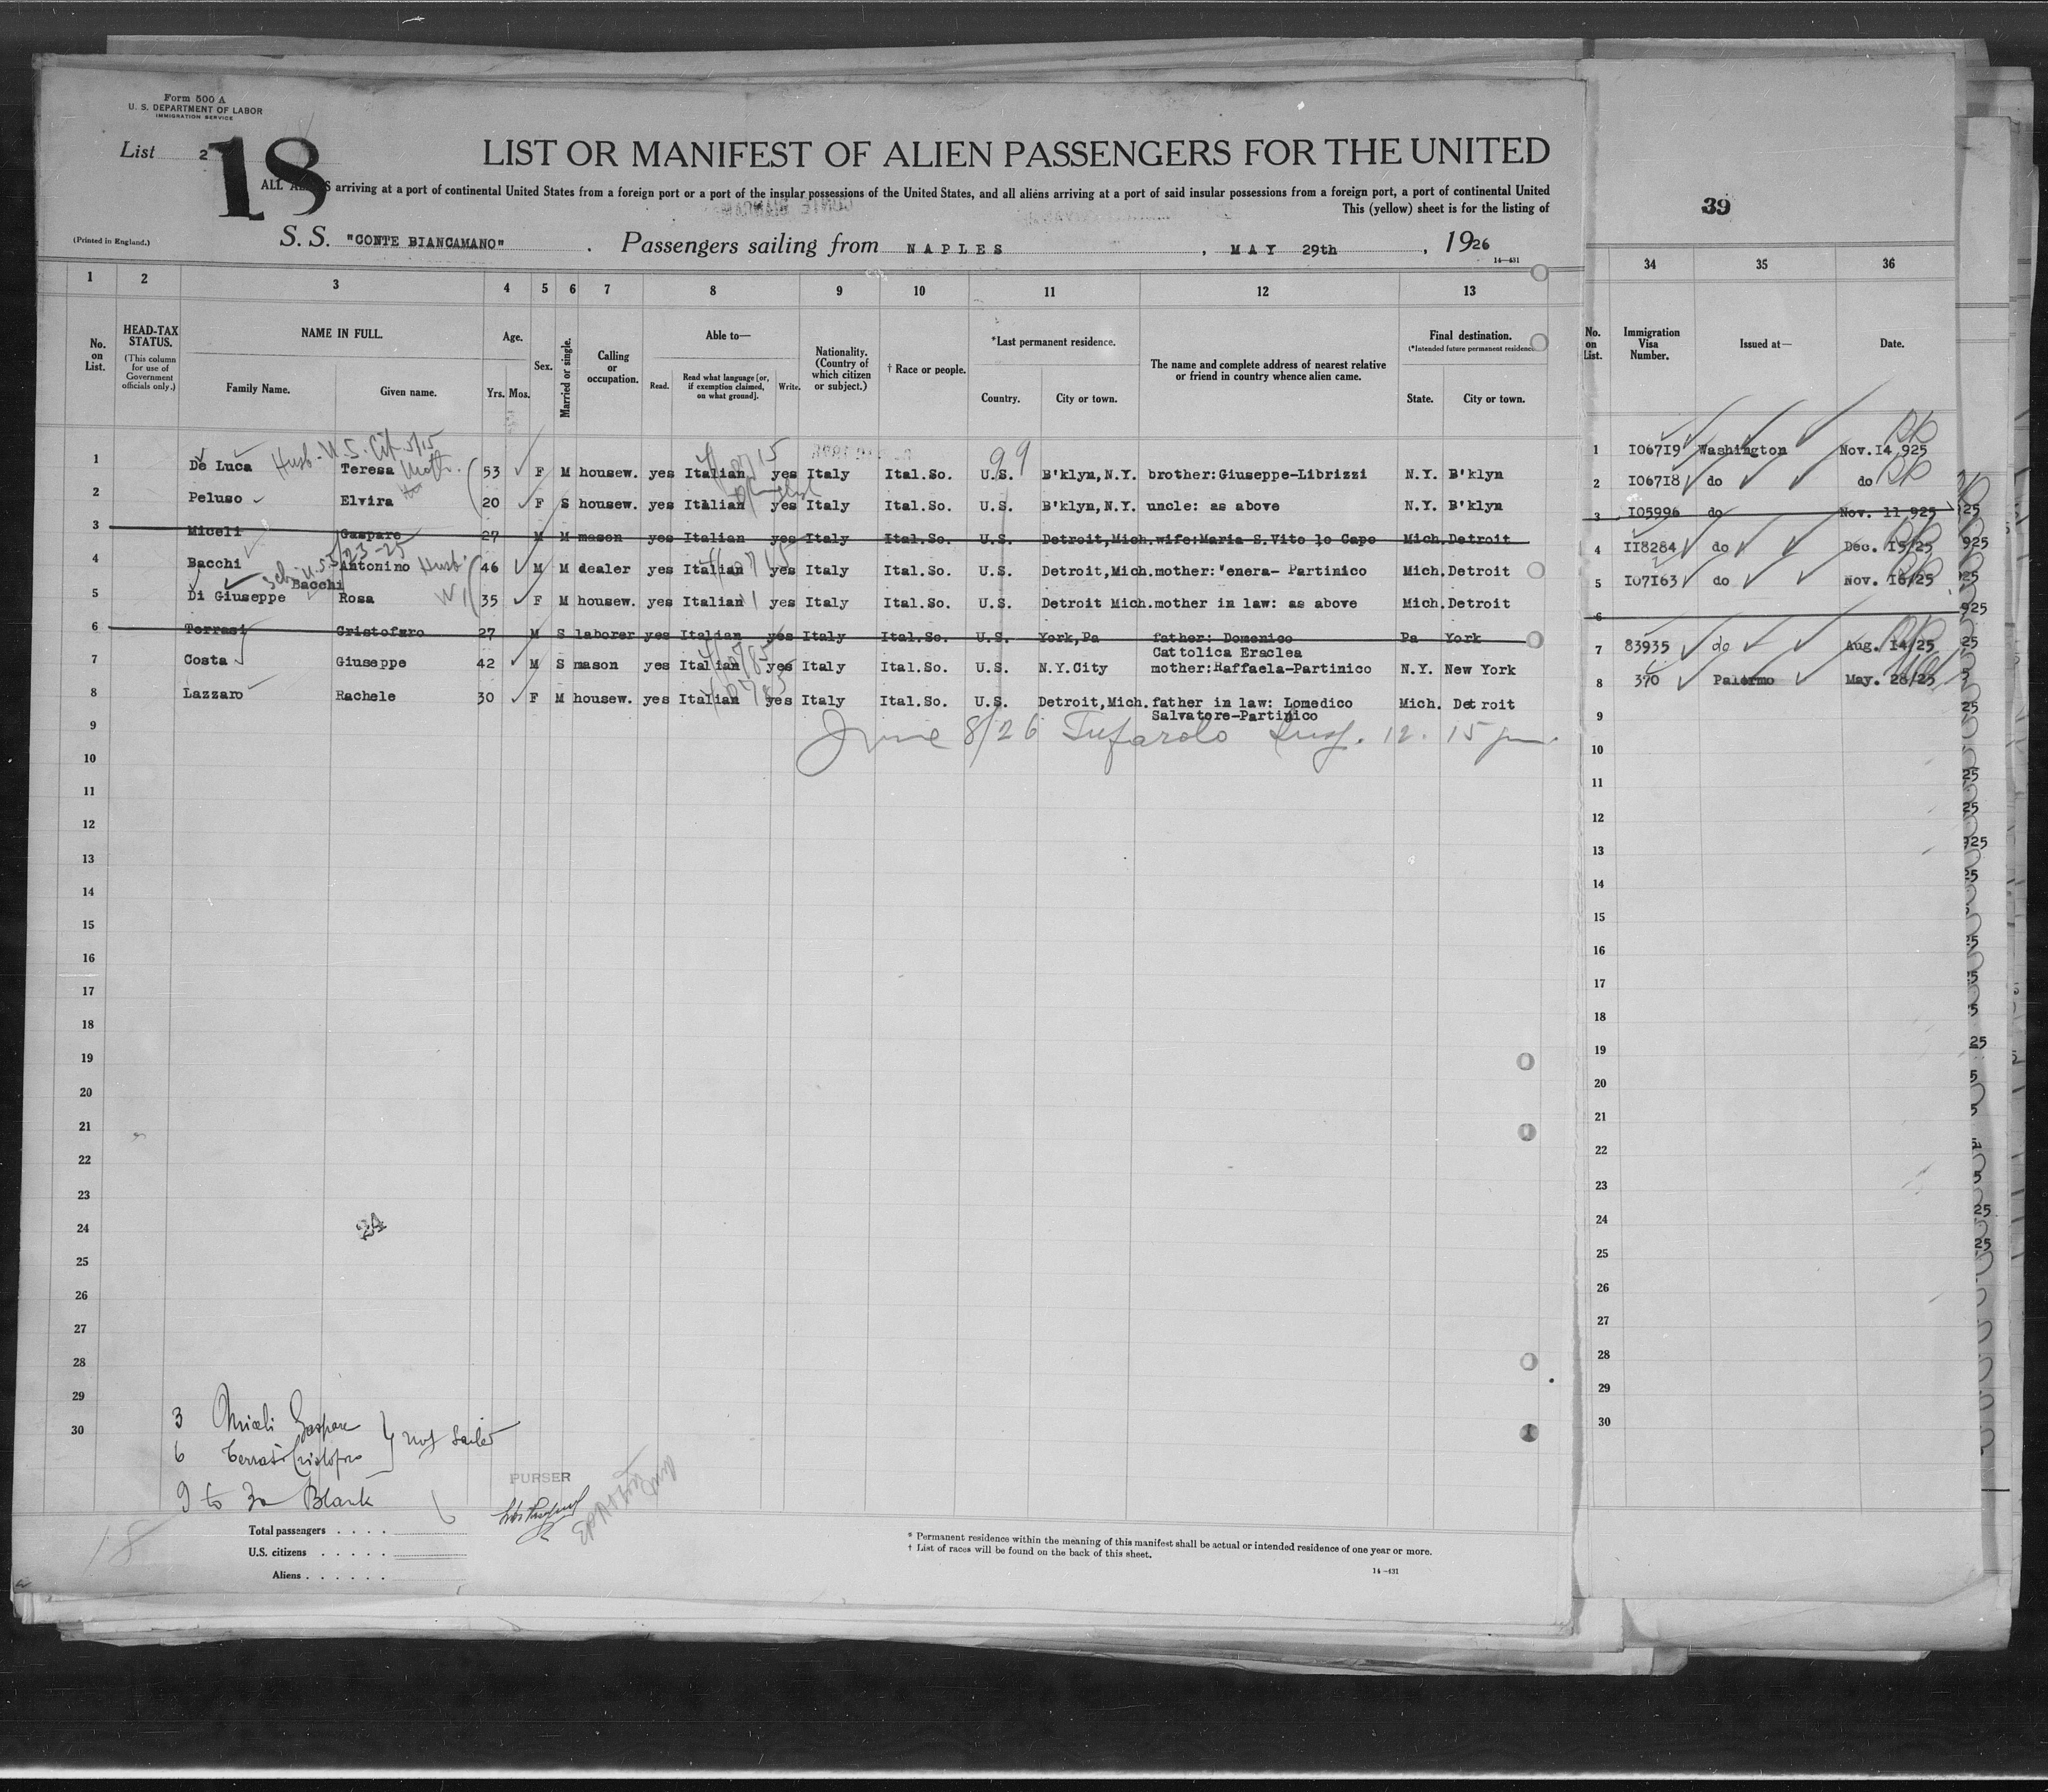 Form 500 A
U. S. DEPARTMENT OF LABOR
IMMIGRATION SERVICE
List 2
18
LIST OR MANIFEST OF ALIEN PASSENGERS FOR THE UNITED
ALL ALIENS arriving at a port of continental United States from a foreign port or a port of the insular possessions of the United States, and all aliens arriving at a port of said insular possessions from a foreign port, a port of continental United
This (yellow) sheet is for the listing of
39
(Printed in England.)
S. S. "CONTE BIANCAMANO" . Passengers sailing from NAPLES , MAY 29th , 1926
14—431
1 2 3 4 5 6 7 8 9 10 11 12 13 34 35 36
No. on List.
HEAD-TAX STATUS.
(This column for use of Government officials only.)
NAME IN FULL.
Family Name. Given name.
Age.
Yrs. Mos.
Sex.
Married or single.
Calling or occupation.
Able to—
Read. Read what language [or, if exemption claimed, on what ground]. Write.
Nationality. (Country of which citizen or subject.)
† Race or people.
*Last permanent residence.
Country. City or town.
The name and complete address of nearest relative or friend in country whence alien came.
Final destination.
(*Intended future permanent residence)
State. City or town.
No. on List.
Immigration Visa Number.
Issued at—
Date.
Husb. U.S. Cit. 5/15
1 De Luca Teresa Moth. 53 F M housew. yes Italian yes Italy Ital.So. U.S. B'klyn,N.Y. brother:Giuseppe-Librizzi N.Y. B'klyn 1 106719 Washington Nov.14 925
2 Peluso Elvira 20 F S housew. yes Italian yes Italy Ital.So. U.S. B'klyn,N.Y. uncle: as above N.Y. B'klyn 2 106718 do do
3 Miceli Gaspare 27 M M mason yes Italian yes Italy Ital.So. U.S. Detroit,Mich. wife:Maria S.Vito lo Capo Mich. Detroit 3 105996 do Nov. 11 925
4 Bacchi Antonino Husb. 46 M M dealer yes Italian yes Italy Ital.So. U.S. Detroit,Mich. mother:'enera- Partinico Mich. Detroit 4 118284 do Dec. 15/25
Bacchi
5 Di Giuseppe Rosa W 35 F M housew. yes Italian yes Italy Ital.So. U.S. Detroit Mich. mother in law: as above Mich. Detroit 5 107163 do Nov. 16/25
6 Terrasi Cristofaro 27 M S laborer yes Italian yes Italy Ital.So. U.S. York,Pa father: Domenico Pa York 6
Cattolica Eraclea
7 Costa Giuseppe 42 M S mason yes Italian yes Italy Ital.So. U.S. N.Y.City mother:Raffaela-Partinico N.Y. New York 7 83935 do Aug. 14/25
8 Lazzaro Rachele 30 F M housew. yes Italian yes Italy Ital.So. U.S. Detroit,Mich. father in law: Lomedico Mich. Detroit 8 390 Palermo May. 28/25
Salvatore-Partinico
9 June 8/26 Tufarolo Insp. 12.15 pm. 9
10 10
11 11
12 12
13 13
14 14
15 15
16 16
17 17
18 18
19 19
20 20
21 21
22 22
23 23
24 24
25 25
26 26
27 27
28 28
29 29
30 30
3 Miceli Gaspare
6 Terrasi Cristofaro } not sailed
9 to 30 Blank
PURSER
18
Total passengers
U.S. citizens
Aliens
* Permanent residence within the meaning of this manifest shall be actual or intended residence of one year or more.
† List of races will be found on the back of this sheet.
14—431